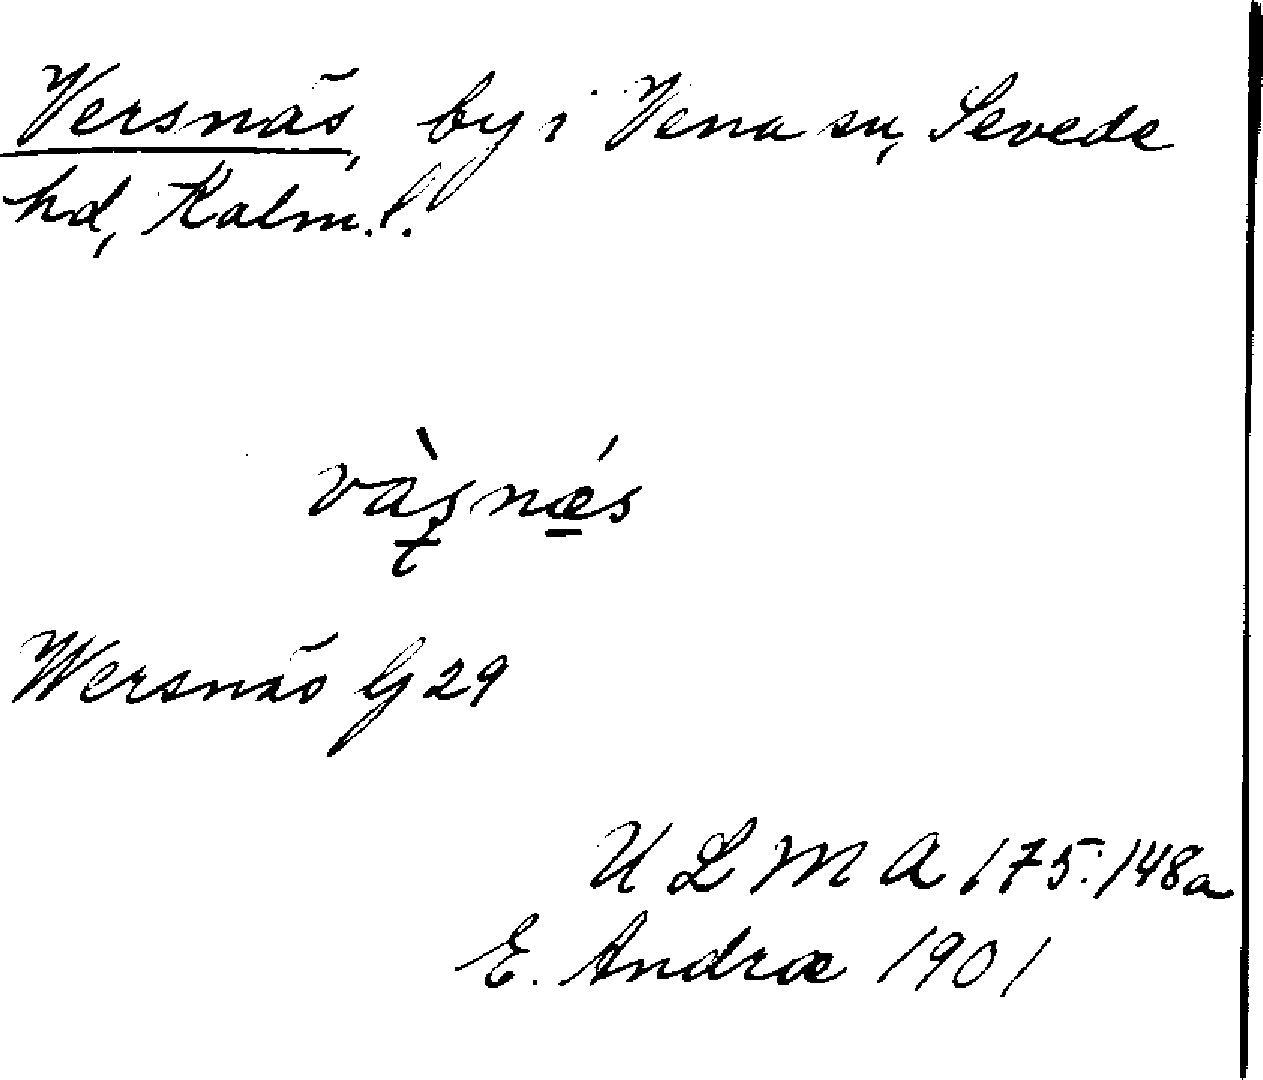 Versnäs, by i Vena sn, Sevede
hd, Kalm.l.
vàsnǽs
Wersnäs G 29
ULMA 175:148a
E. Andræ 1901